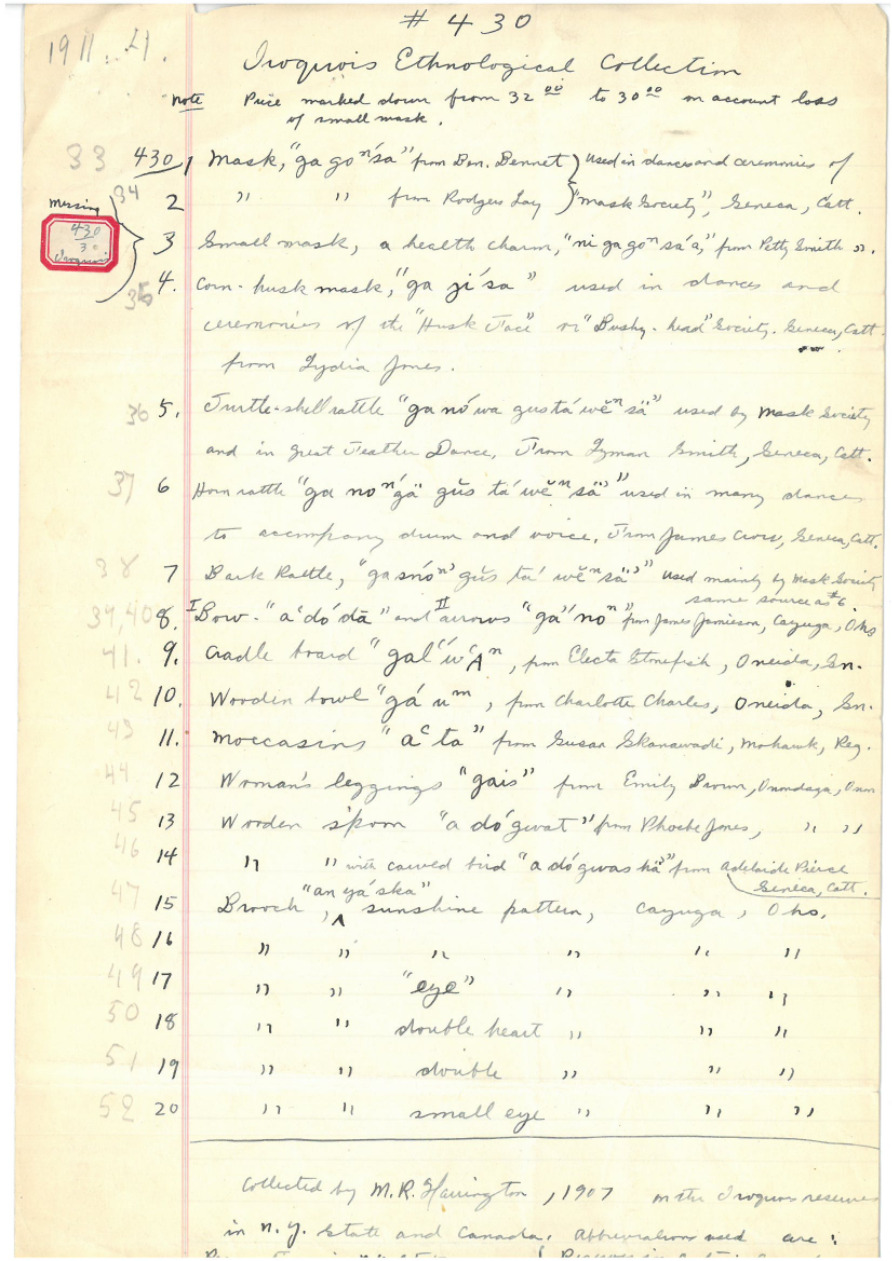 # 430
1911.
Iroquois Ethnological Collection
Note Price marked down from 32 00 to 30 00 on account loss
of small mask.
33 430/1 Mask, "ga goⁿ´sa" from Ben. Bennet } used in dances and ceremonies of
34 2 " " from Rodgers Lay } "mask Society", Seneca, Catt.
missing
430
30
Iroquois
3 Small mask, a health charm, "ni ga goⁿ sá´a," from Petty Smith ".
35 4. Corn-husk mask, "ga ji´sa" used in dances and
ceremonies of the "Husk Face" or "Bushy-head" Society. Seneca, Catt.
from Lydia Jones.
36 5. Turtle-shell rattle "ga nó´wa gus tá´ wĕⁿ sä" used by Mask Society
and in great Feather Dance. From Lyman Smith, Seneca, Catt.
37 6 Horn rattle "ga noⁿ´gä gŭs tá´ wĕⁿ sä" used in many dances
to accompany drum and voice. From James Crow, Seneca, Catt.
38 7 Bark Rattle, "ga snóⁿ´ gŭs tá´ wĕⁿ sä" used mainly by Mask Society
same source as #6.
39,40 8. I Bow - "a´ dó´ dā" and II arrows "gá´ noⁿ" from James Jamieson, Cayuga, Oho
41. 9. Cradle board "gal´´ w´Aⁿ, from Electa Stonefish, Oneida, On.
42 10. Wooden bowl "gá´ uᵐ, from Charlotte Charles, Oneida, On.
43 11. Moccasins "aᶜ ta" from Susan Skanawadi, Mohawk, Reg.
44 12 Woman's leggings "gais" from Emily Brown, Onondaga, Onon
45 13 Wooden spoon "a dó´gwat" from Phoebe Jones, " "
46 14 " " with carved bird "a dó´gwas hä" from Adelaide Pierce
Seneca, Catt.
"an yá´ska"
47 15 Brooch, ^ sunshine pattern, Cayuga, Oho.
48 16 " " " " " "
49 17 " " "eye" " " "
50 18 " " double heart " " "
51 19 " " double " " "
52 20 " " small eye " " "
Collected by M.R. Harrington, 1907 on the Iroquois reserves
in N.Y. State and Canada. Abbreviations used are: